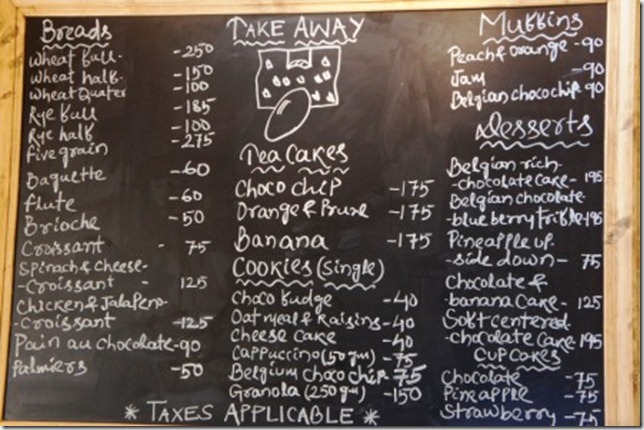 Breads
Wheat full- -250
Wheat half- -150
Wheat Quater -100
Rye full -185
Rye half -100
Five grain -275
Baguette -60
Flute -60
Brioche -50
Croissant - 75
Spinach & cheese-
-Croissant - 125
Chicken & Jalapeno-
-Croissant -125
Pain au chocolate-90
Palmiers -50
TAKE AWAY
Tea Cakes
Choco chip -175
Orange & Prune -175
Banana -175
Cookies (single)
Choco fudge -40
Oatmeal & Raisins-40
Cheese cake -40
Cappuccino (50gm) -75
Belgium choco chip-75
Granola (250gm) -150
Muffins
Peach & orange -90
Jam -90
Belgian choco chip-90
Desserts
Belgian rich-
-chocolate cake- 195
Belgian chocolate-
-blueberry trifle-195
Pineapple up-
-side down- 75
Chocolate &
-banana cake- 125
Soft centered-
-chocolate cake-195
Cupcakes
Chocolate -75
Pineapple -75
Strawberry -75
* TAXES APPLICABLE *